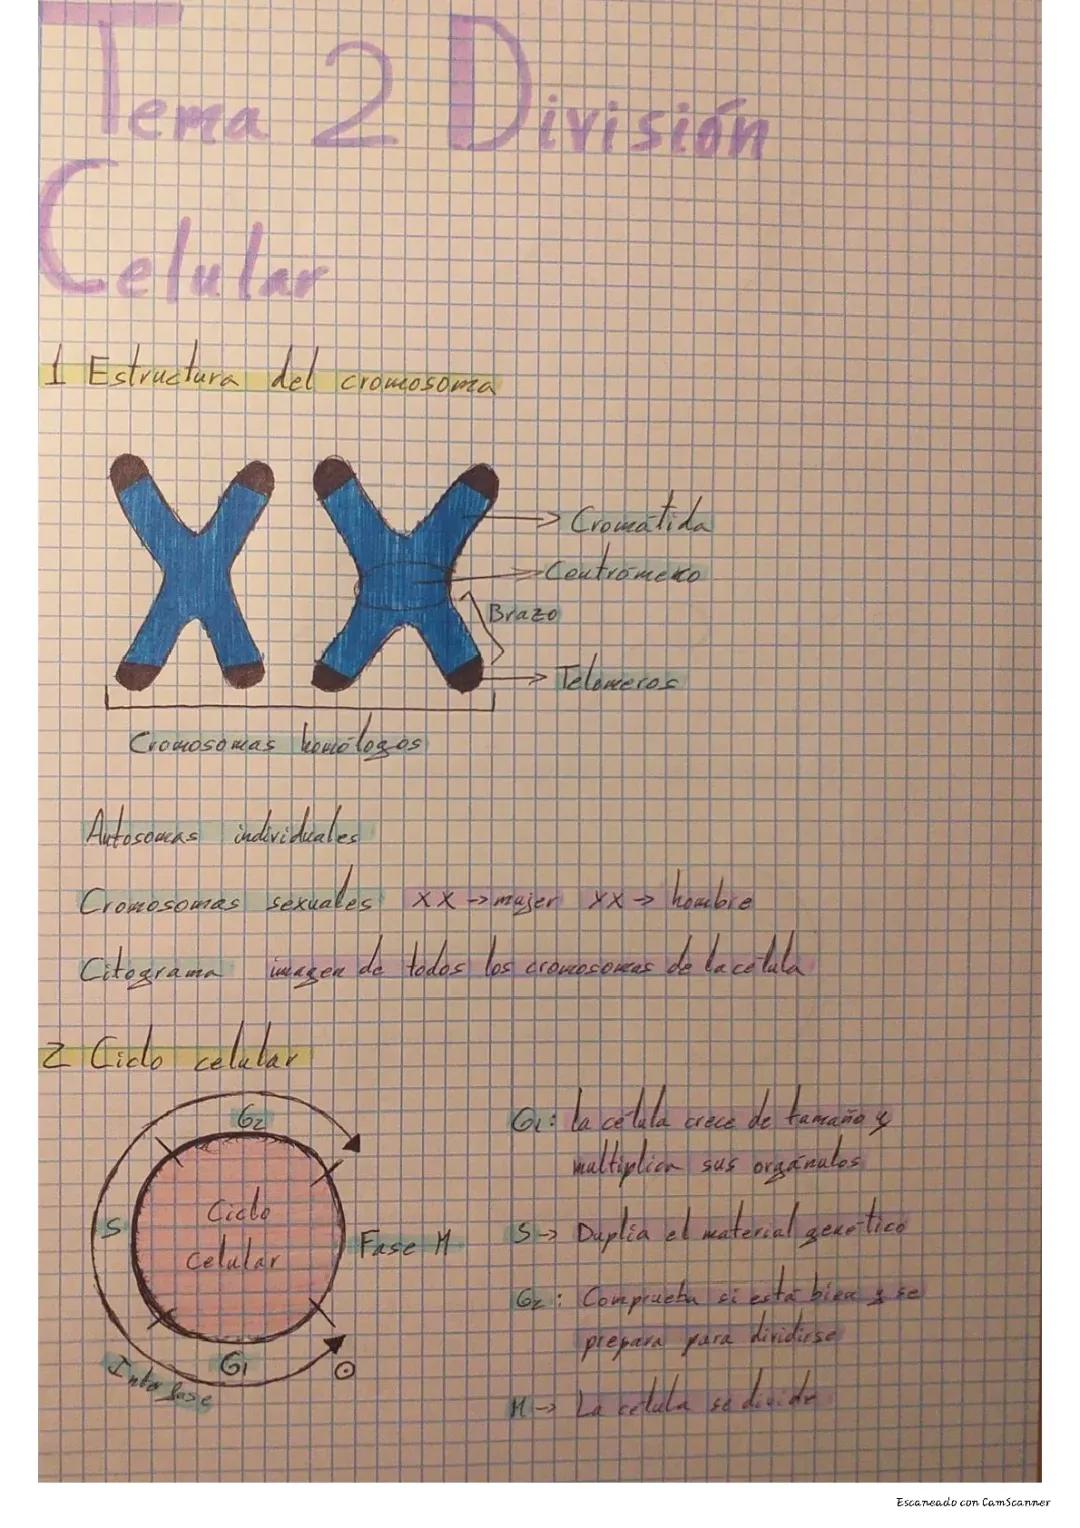 Tema 2 División
Celular
1 Estructura del cromosoma
Cromátida
Centrómero
Brazo
Telómeros
Cromosomas homólogos
Autosomas individuales
Cromosomas sexuales XX → mujer XX → hombre
Citograma imagen de todos los cromosomas de la célula
2 Ciclo celular
G2
S
Ciclo
Celular
Fase M
G1
Interfase
G1: la célula crece de tamaño y
multiplica sus orgánulos
S → Duplia el material genético
G2: Comprueba si está bien y se
prepara para dividirse
M → La célula se divide
Escaneado con CamScanner